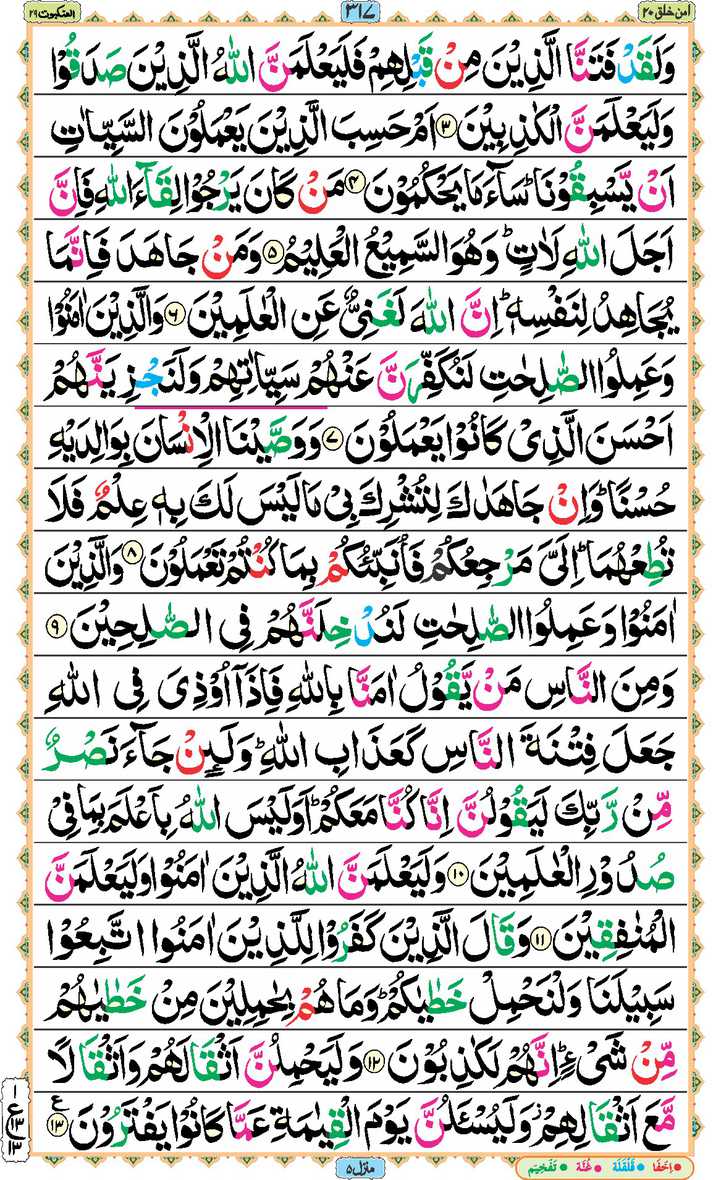 امن خلق ۲۰ ۳۱۷ العنکبوت ۲۹
وَلَقَدْ فَتَنَّا الَّذِيْنَ مِنْ قَبْلِهِمْ فَلَيَعْلَمَنَّ اللّٰهُ الَّذِيْنَ صَدَقُوْا
وَلَيَعْلَمَنَّ الْكٰذِبِيْنَ ۳ اَمْ حَسِبَ الَّذِيْنَ يَعْمَلُوْنَ السَّيِّاٰتِ
اَنْ يَّسْبِقُوْنَا ؕ سَآءَ مَا يَحْكُمُوْنَ ۴ مَنْ كَانَ يَرْجُوْا لِقَآءَ اللّٰهِ فَاِنَّ
اَجَلَ اللّٰهِ لَاٰتٍ ؕ وَهُوَ السَّمِيْعُ الْعَلِيْمُ ۵ وَمَنْ جَاهَدَ فَاِنَّمَا
يُجَاهِدُ لِنَفْسِهٖ ؕ اِنَّ اللّٰهَ لَغَنِيٌّ عَنِ الْعٰلَمِيْنَ ۶ وَالَّذِيْنَ اٰمَنُوْا
وَعَمِلُوا الصّٰلِحٰتِ لَنُكَفِّرَنَّ عَنْهُمْ سَيِّاٰتِهِمْ وَلَنَجْزِيَنَّهُمْ
اَحْسَنَ الَّذِيْ كَانُوْا يَعْمَلُوْنَ ۷ وَوَصَّيْنَا الْاِنْسَانَ بِوَالِدَيْهِ
حُسْنًا ؕ وَاِنْ جَاهَدٰكَ لِتُشْرِكَ بِيْ مَا لَيْسَ لَكَ بِهٖ عِلْمٌ فَلَا
تُطِعْهُمَا ؕ اِلَيَّ مَرْجِعُكُمْ فَاُنَبِّئُكُمْ بِمَا كُنْتُمْ تَعْمَلُوْنَ ۸ وَالَّذِيْنَ
اٰمَنُوْا وَعَمِلُوا الصّٰلِحٰتِ لَنُدْخِلَنَّهُمْ فِي الصّٰلِحِيْنَ ۹
وَمِنَ النَّاسِ مَنْ يَّقُوْلُ اٰمَنَّا بِاللّٰهِ فَاِذَاۤ اُوْذِيَ فِي اللّٰهِ
جَعَلَ فِتْنَةَ النَّاسِ كَعَذَابِ اللّٰهِ ؕ وَلَئِنْ جَآءَ نَصْرٌ
مِّنْ رَّبِّكَ لَيَقُوْلُنَّ اِنَّا كُنَّا مَعَكُمْ ؕ اَوَلَيْسَ اللّٰهُ بِاَعْلَمَ بِمَا فِيْ
صُدُوْرِ الْعٰلَمِيْنَ ۱۰ وَلَيَعْلَمَنَّ اللّٰهُ الَّذِيْنَ اٰمَنُوْا وَلَيَعْلَمَنَّ
الْمُنٰفِقِيْنَ ۱۱ وَقَالَ الَّذِيْنَ كَفَرُوْا لِلَّذِيْنَ اٰمَنُوا اتَّبِعُوْا
سَبِيْلَنَا وَلْنَحْمِلْ خَطٰيٰكُمْ ؕ وَمَا هُمْ بِحٰمِلِيْنَ مِنْ خَطٰيٰهُمْ
مِّنْ شَيْءٍ ؕ اِنَّهُمْ لَكٰذِبُوْنَ ۱۲ وَلَيَحْمِلُنَّ اَثْقَالَهُمْ وَاَثْقَالًا
مَّعَ اَثْقَالِهِمْ ۫ وَلَيُسْـَٔلُنَّ يَوْمَ الْقِيٰمَةِ عَمَّا كَانُوْا يَفْتَرُوْنَ ۱۳ ع
۱
ع ۱۳
۱۳
منزل ۵
اِخْفَا قَلْقَلَة غُنَّة تَفْخِيْم